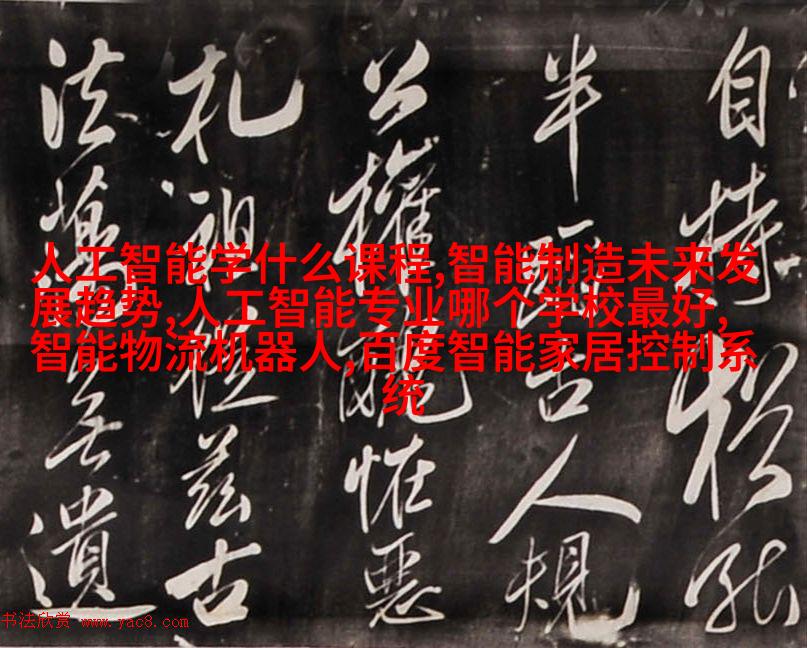 自
半 古人規
公權醜怪惡
札祖從茲古
法蕩無遺
人工智能学什么课程,智能制造未来发
展趋势,人工智能专业哪个学校最好,
智能物流机器人,百度智能家居控制系
统
书法欣赏 www.yac8.com